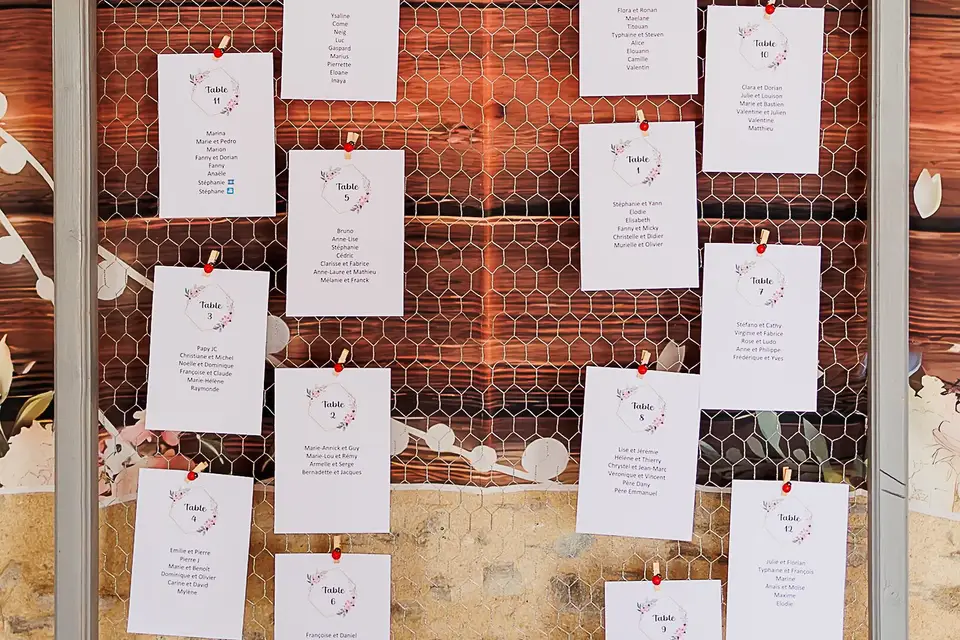 Ysaline
Come
Neig
Luc
Gaspard
Marius
Pierrette
Eloane
Inaya
Flora et Ronan
Maelane
Titouan
Typhaine et Steven
Alice
Elouann
Camille
Valentin
Table
10
Clara et Dorian
Julie et Louison
Marie et Bastien
Valentine et Julien
Valentine
Matthieu
Table
11
Marina
Marie et Pedro
Marion
Fanny et Dorian
Fanny
Anaële
Stéphanie
Stéphane
Table
5
Bruno
Anne-Lise
Stéphanie
Cédric
Clarisse et Fabrice
Anne-Laure et Mathieu
Mélanie et Franck
Table
1
Stéphanie et Yann
Elodie
Elisabeth
Fanny et Micky
Christelle et Didier
Murielle et Olivier
Table
7
Stéfano et Cathy
Virginie et Fabrice
Rose et Ludo
Anne et Philippe
Fréderique et Yves
Table
3
Papy JC
Christiane et Michel
Noëlle et Dominique
Françoise et Claude
Marie-Hélène
Raymonde
Table
2
Marie-Annick et Guy
Marie-Lou et Rémy
Armelle et Serge
Bernadette et Jacques
Table
8
Lise et Jérémie
Hélène et Thierry
Chrystel et Jean-Marc
Véronique et Vincent
Père Dany
Père Emmanuel
Table
4
Emilie et Pierre
Pierre J
Marie et Benoît
Dominique et Olivier
Carine et David
Mylène
Table
12
Julie et Florian
Typhaine et François
Marine
Anaïs et Moïse
Maxime
Elodie
Table
6
Françoise et Daniel
Table
9